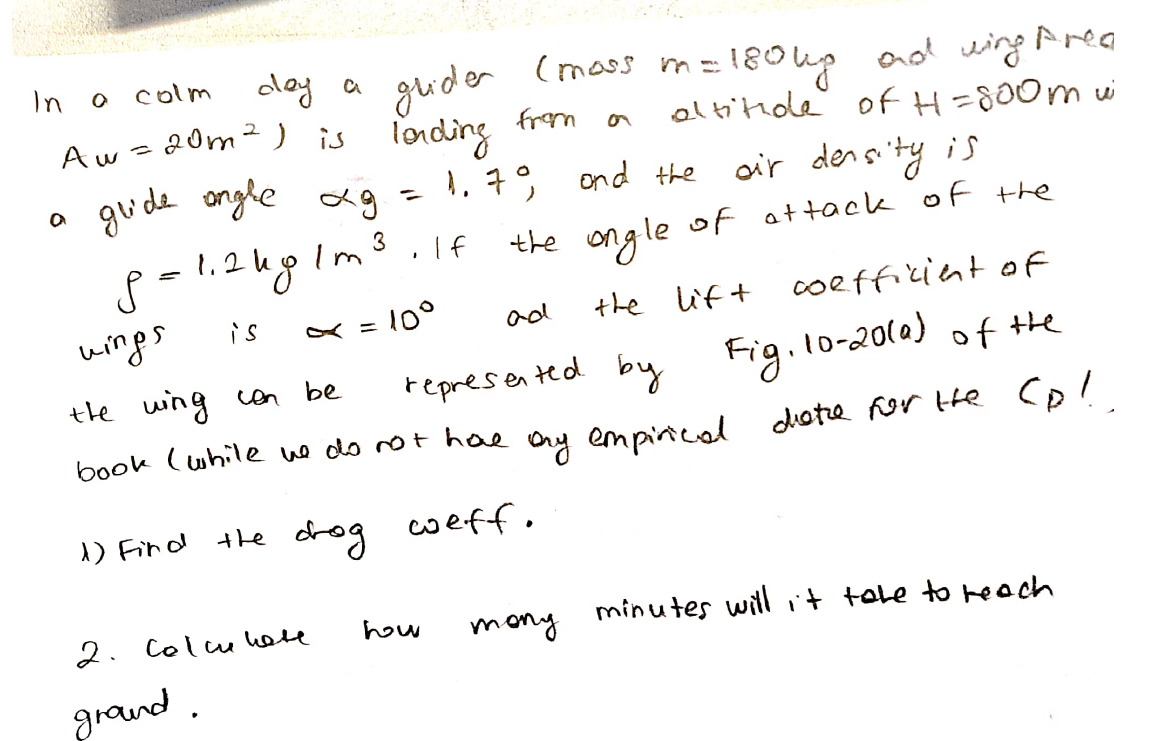 In a calm day a glider (mass m = 180 kg and wing Area
Aw = 20m²) is landing from an altitude of H = 800m wi
a glide angle αg = 1.7°, and the air density is
ρ = 1.2 kg/m³. If the angle of attack of the
wings is α = 10° ad the lift coefficient of
the wing can be represented by Fig. 10-20(a) of the
book (while we do not have any empirical data for the CD!
1) Find the drag coeff.
2. Calculate how many minutes will it take to reach
ground.